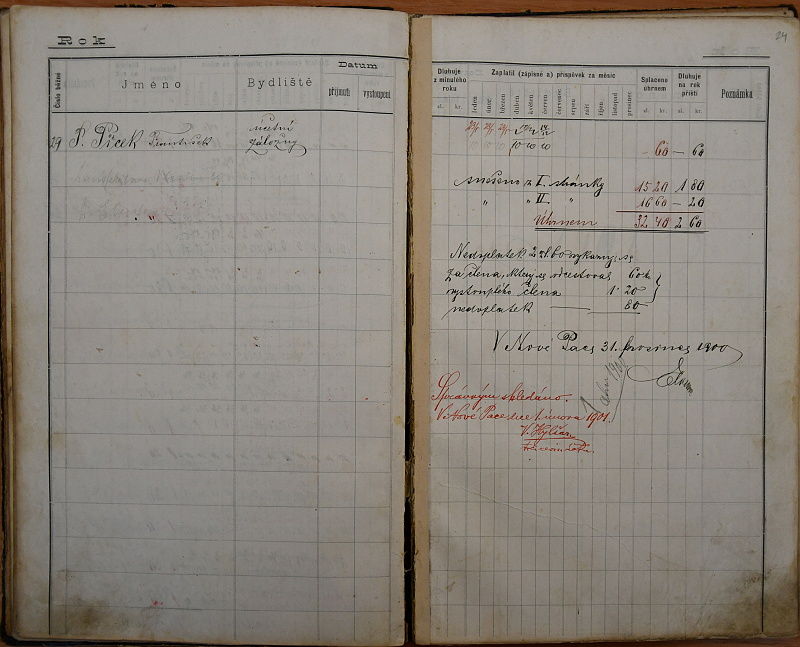 Rok
Číslo běžné
Jméno
Bydliště
Datum
přijmutí
vystoupení
29 P. Picek František
účetní
záložny
24
Dluhuje
z minulého
roku
zl. kr.
Zaplatil (zápisné a) příspěvek za měsíc
leden únor březen duben květen červen červenec srpen září říjen listopad prosinec
Splaceno
úhrnem
zl. kr.
Dluhuje
na rok
příští
zl. kr.
Poznámka
10 10 10
60 — 60
sneseno z I. stránky 15 20 1 80
„ „ II. „ 16 60 — 20
Úhrnem 32 40 2 60
Nedoplatek 2 zl. 60 vykazuje se
za člena, který se odcestoval 60 k
vystouplého člena 1 20
nedoplatek — 80
V Nové Pace 31. prosince 1900
Správným shledáno.
V Nové Pace dne února 1901.